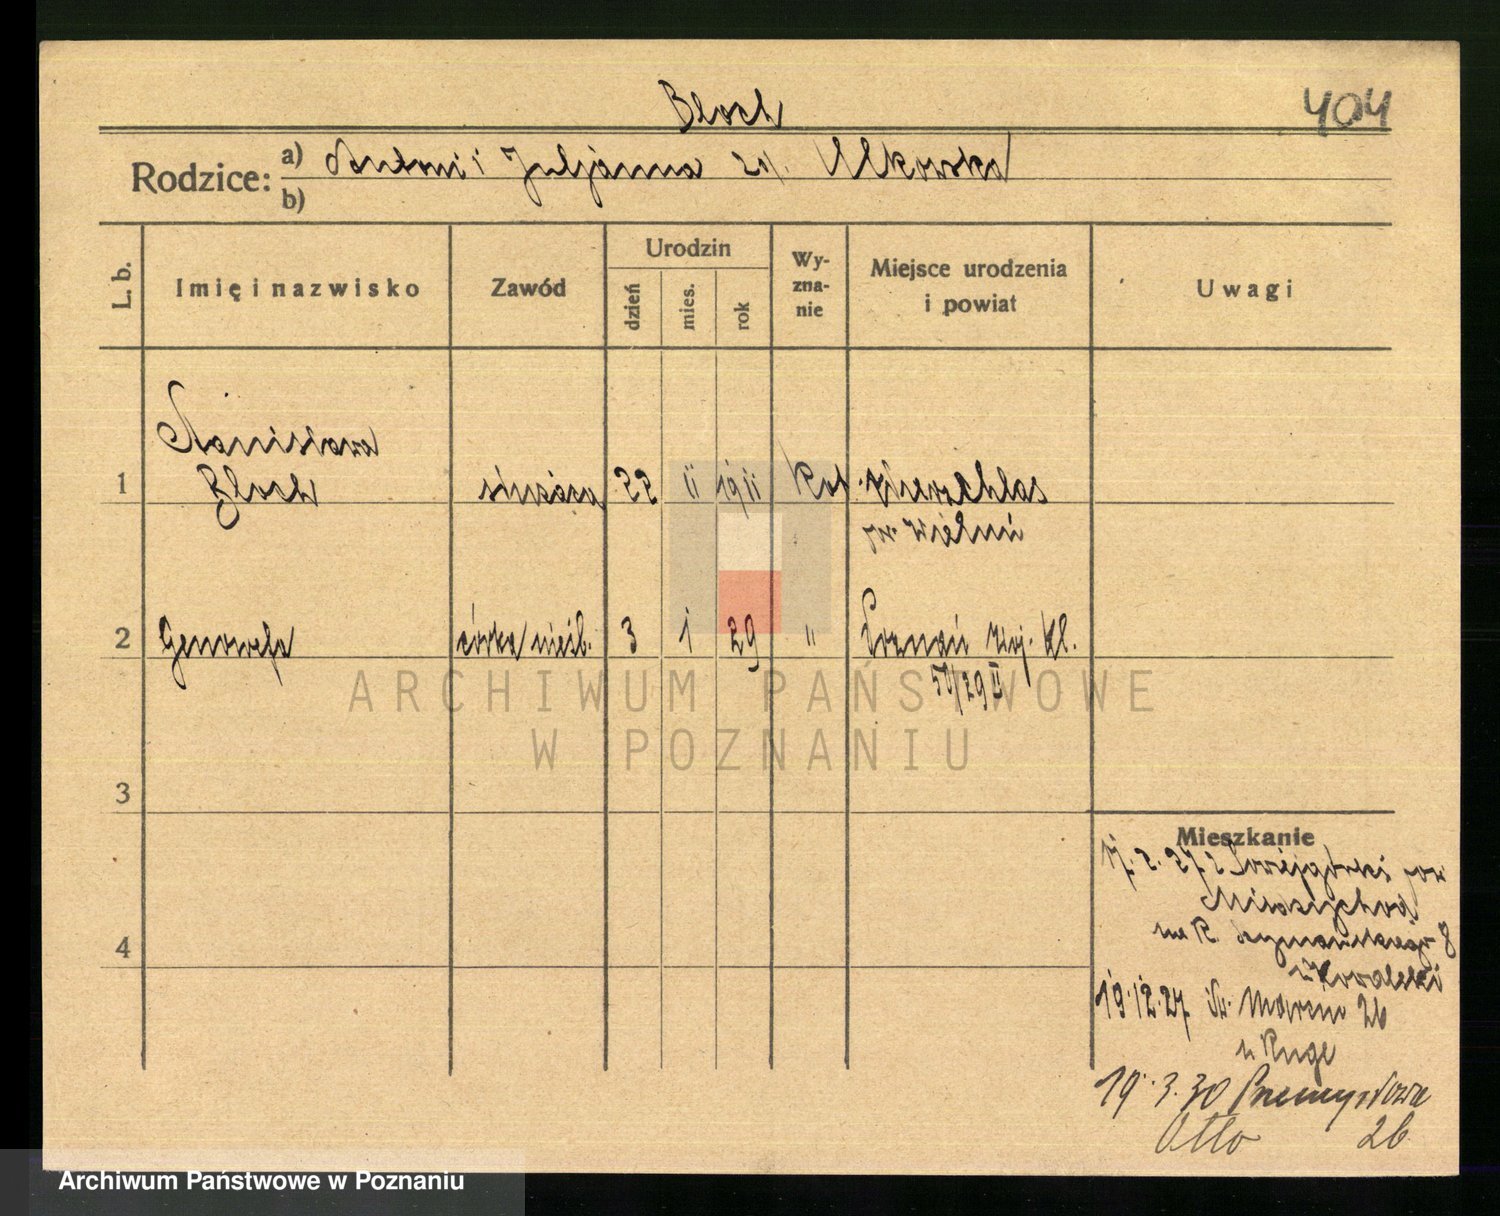 Bloch
404
Rodzice:
a) Antoni i Juljanna zd. Ulkowska
b)
L. b.
Imię i nazwisko
Zawód
Urodzin
dzień
mies.
rok
Wy-
zna-
nie
Miejsce urodzenia
i powiat
Uwagi
Stanisława
1 Bloch służąca 22 11 1911 kat. Wierzchlas
pow. Wieluń
2 Genowefa córka nieśl. 3 1 29 " Poznań Woj. Kl.
50/29 II
3
4
Mieszkanie
17. 5. 27 z pow
na Pl. 8
u Kowalski
19.12.27 Św. Marcin 26
u Ruge
19.3.30 Przemysłowa
Otto 26
ARCHIWUM PAŃSTWOWE
W POZNANIU
Archiwum Państwowe w Poznaniu